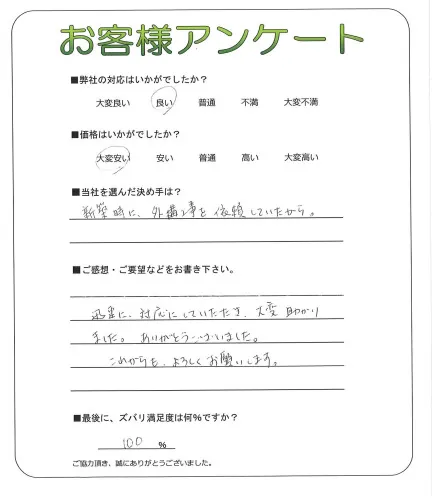 お客様アンケート
■弊社の対応はいかがでしたか？
大変良い 良い 普通 不満 大変不満
■価格はいかがでしたか？
大変安い 安い 普通 高い 大変高い
■当社を選んだ決め手は？
新築時に、外構工事を依頼していたから。
■ご感想・ご要望などをお書き下さい。
迅速に、対応していただき、大変助かり
ました。ありがとうございました。
これからも、よろしくお願いします。
■最後に、ズバリ満足度は何％ですか？
100 %
ご協力頂き、誠にありがとうございました。